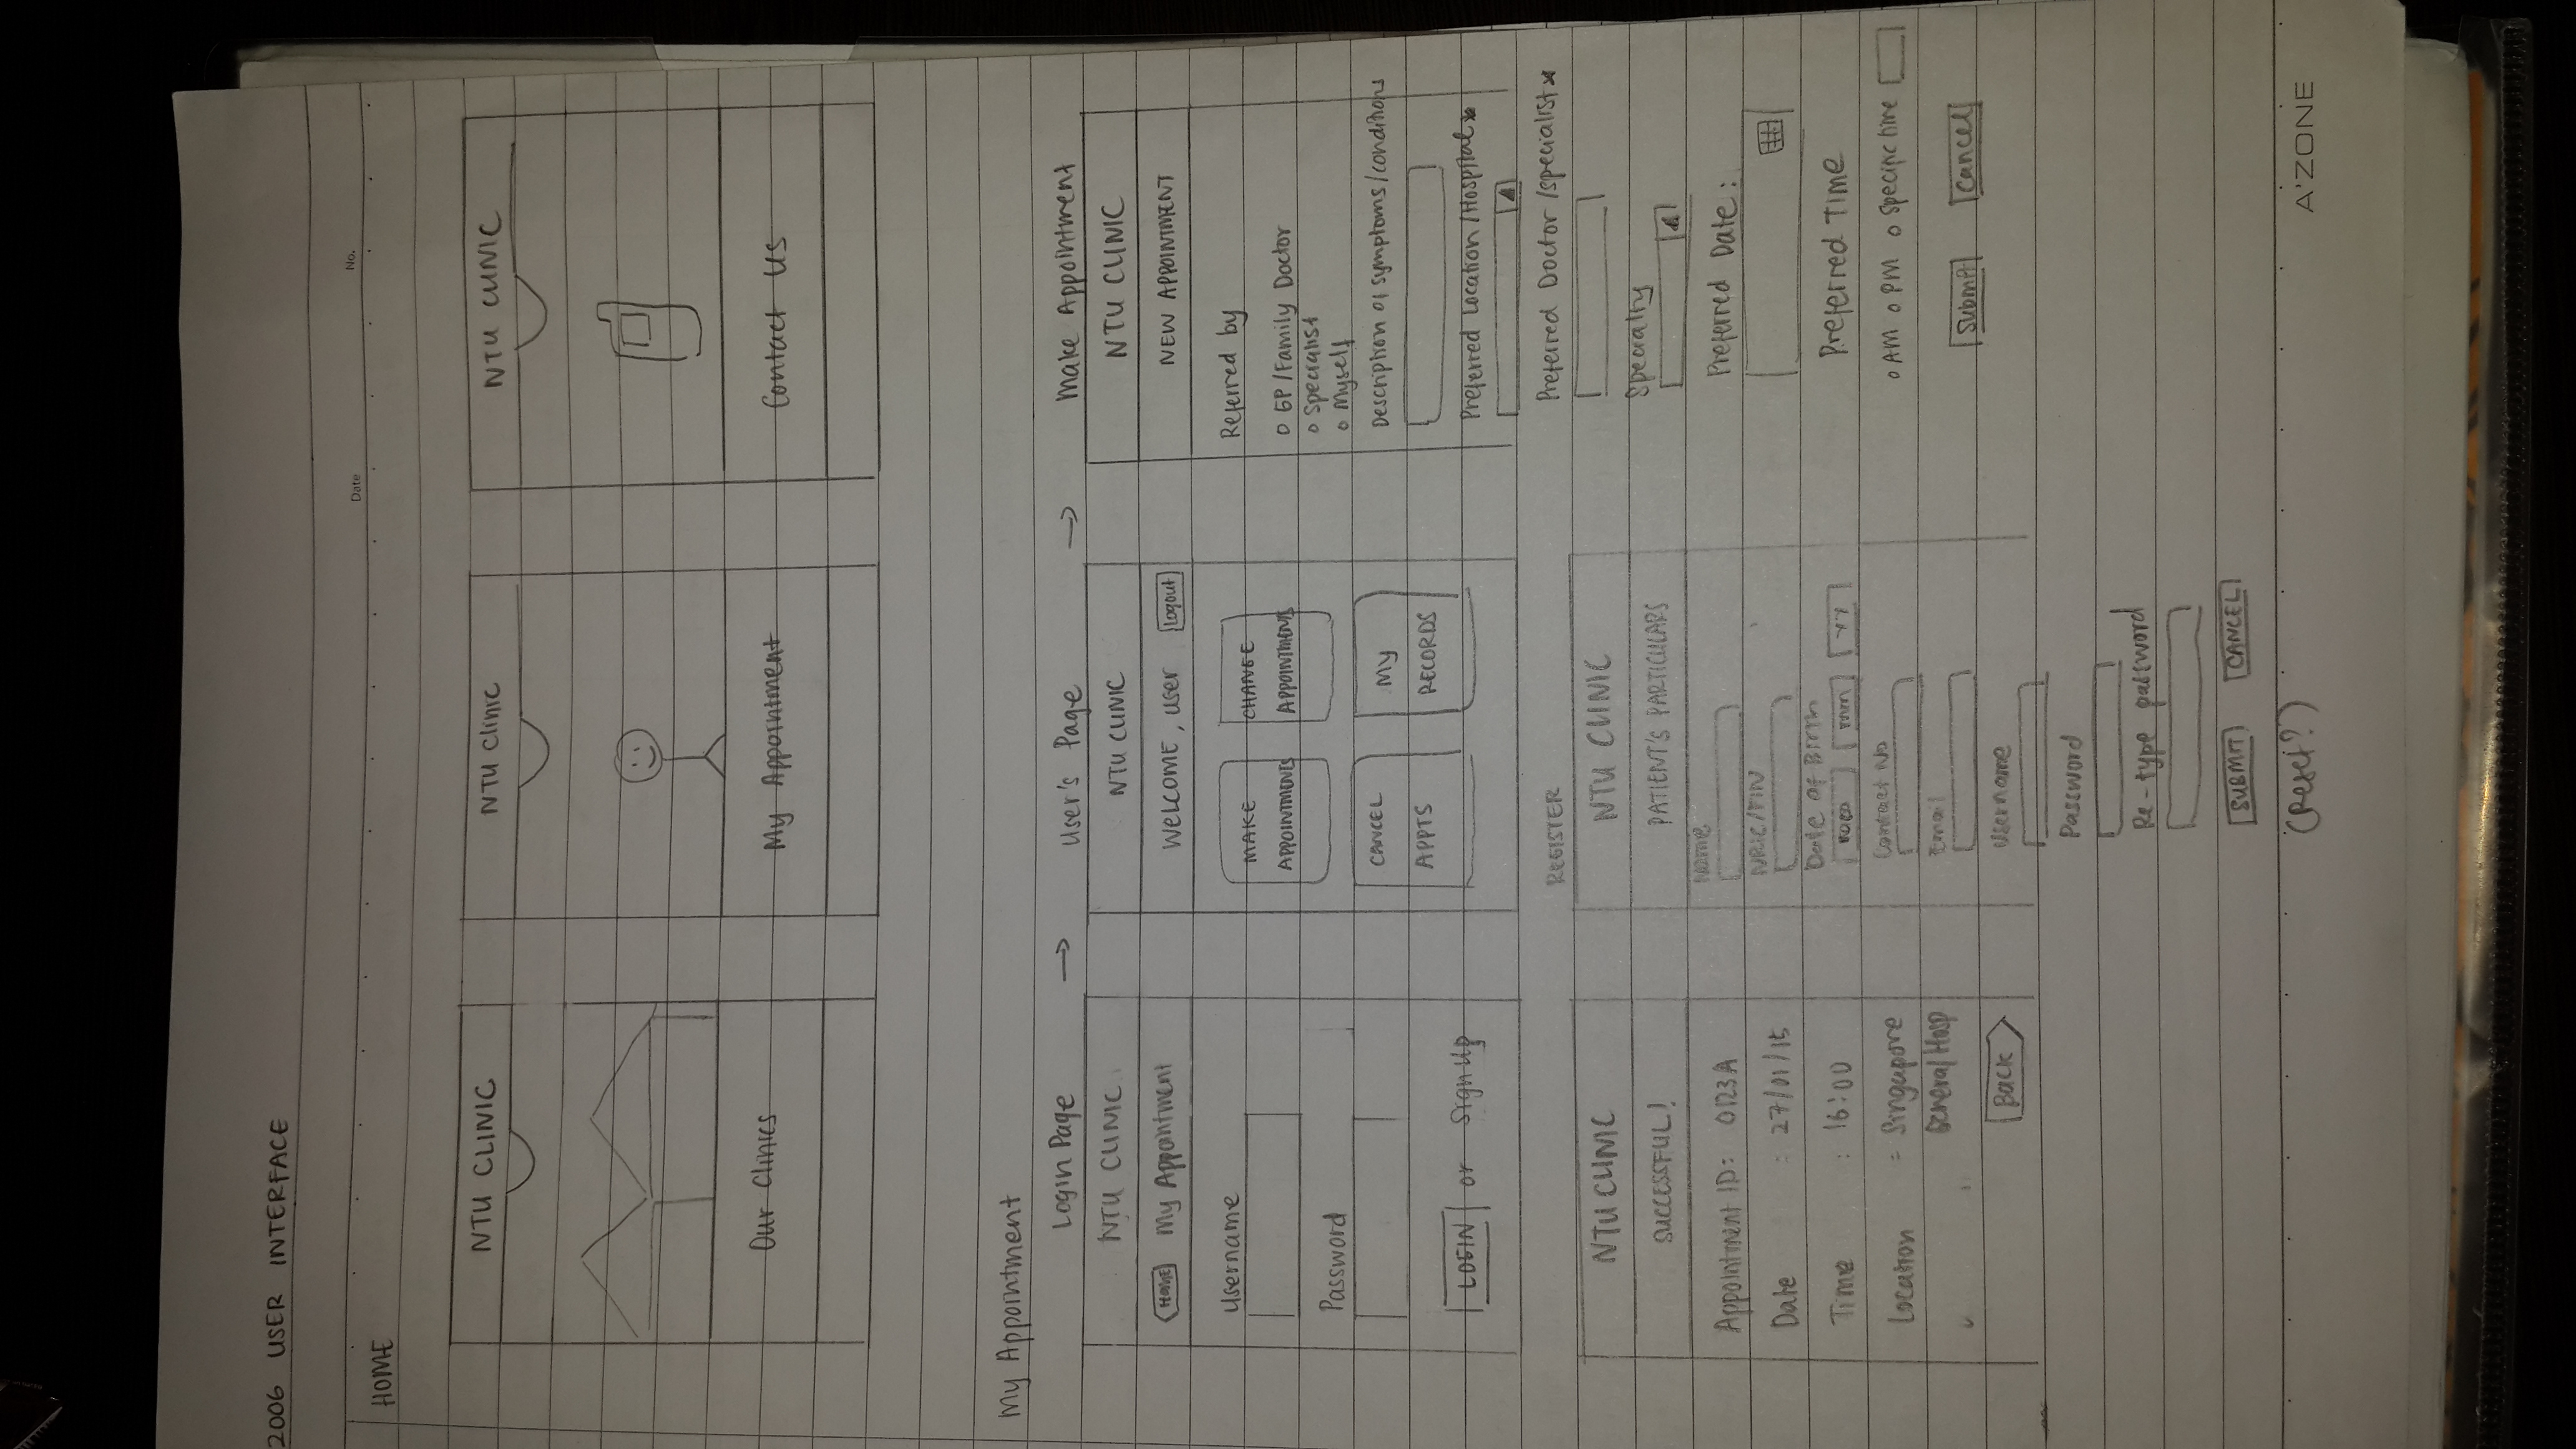 2006 USER INTERFACE
Date
No.
HOME
NTU CLINIC
Our Clinics
NTU Clinic
My Appointment
NTU CLINIC
Contact Us
My Appointment
Login Page → User's Page → Make Appointment
NTU CLINIC
HOME My Appointment
Username
Password
LOGIN or Sign Up
NTU CLINIC
WELCOME, user Logout
MAKE
APPOINTMENTS
CHANGE
APPOINTMENTS
CANCEL
APPTS
My
RECORDS
NTU CLINIC
NEW APPOINTMENT
Referred by
o GP/Family Doctor
o Specialist
o Myself
Description of symptoms/conditions
Preferred Location/Hospital*
Preferred Doctor/specialist*
Specialty
Preferred Date:
Preferred Time
o AM o PM o Specific time
Submit Cancel
NTU CLINIC
SUCCESSFUL!
Appointment ID: 0123A
Date : 27/01/15
Time : 16:00
Location : Singapore
General Hosp
Back
REGISTER
NTU CLINIC
PATIENT'S PARTICULARS
Name
NRIC/FIN
Date of Birth
mm YY
Contact No
Email
Username
Password
Re-type password
SUBMIT CANCEL
(Reset?)
A'ZONE